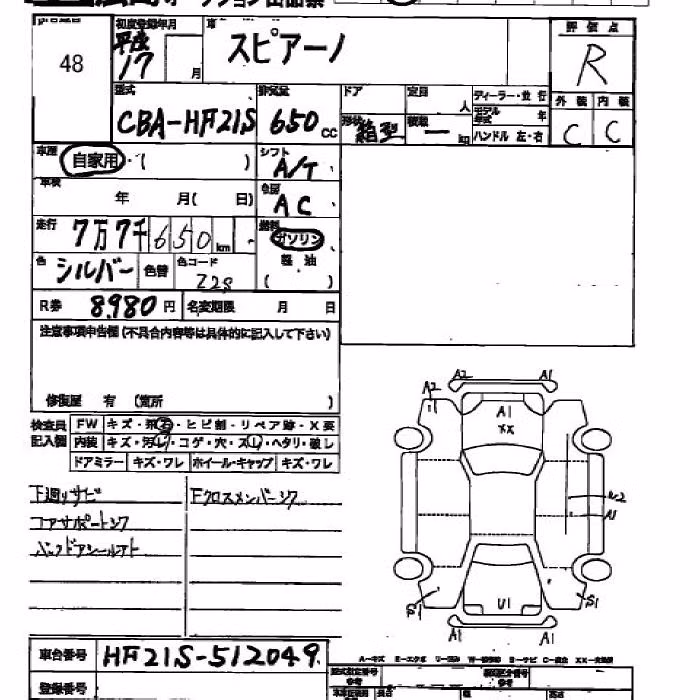 48
初度登録年月
平成
17
月
車
スピアーノ
評価点
R
型式
CBA-HF21S
排気量
650 cc
ドア
形状
箱型
定員
人
積載
ー kg
ディーラー・並行
モデル年式
年
ハンドル 左・右
外装 内装
C C
車歴
自家用・( )
シフト
A/T
車検
年 月( 日)
冷房
AC
走行
7万7千650 km
燃料
ガソリン
軽油
( )
色
シルバー
色替
色コード
Z2S
R券 8,980 円
名変期限 月 日
注意事項申告欄 (不具合内容等は具体的に記入して下さい)
修復歴 有 (箇所 )
検査員
記入欄
FW
内装 キズ・汚レ・コゲ・穴・スレ・ヘタリ・破レ
ドアミラー キズ・ワレ ホイール・キャップ キズ・ワレ
下廻りサビ
Fクロスメンバーツブ
コアサポートツブ
バックドアシールアト
A2 A1
A2
A1
XX
W2
A1
S1
U1
S1
A1 A1
車台番号 HF21S-512049
登録番号